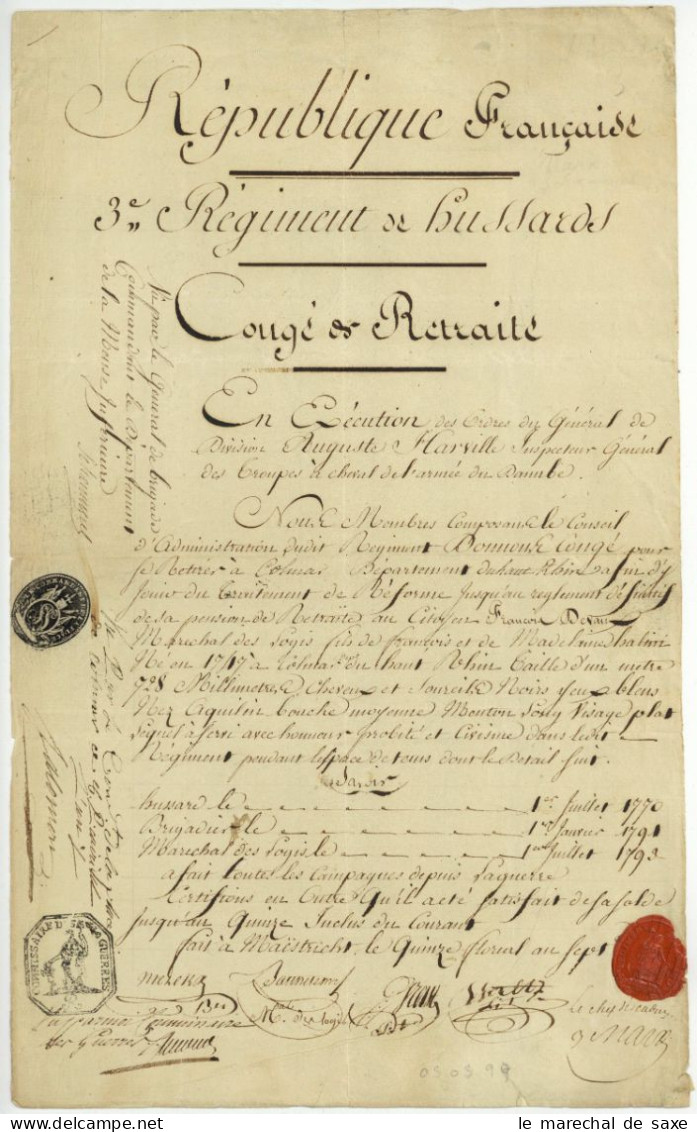 République Française
3e Régiment de hussards
Congé de Retraite
En Exécution des Ordres du Général de
Division Auguste Harville Inspecteur Général
des Troupes à cheval de l'armée du Danube.
Nous Membres Composans le Conseil
d'Administration dudit Regiment Donnons Congé pour
se Retirer à Colmar Département du haut Rhin afin d'y
Jouir du traitement de Réforme Jusqu'au reglement définitif
de sa pension de Retraite, au Citoyen François
Marechal des Logis fils de françois et de Madelaine
Né en 1747 à Colmar du haut Rhin taille d'un metre
728 Millimetres, Cheveux et Sourcils Noirs yeux bleus
Nez Aquilin bouche moyenne Menton Visage plat
à servi avec honneur probité et Civisme dans ledit
Régiment pendant l'espace de tems dont le Détail suit.
Savoir
hussard le 1er Juillet 1770
Brigadier le 1er Janvier 1791
Marechal des Logis, le 1er Juillet 1793
a fait toutes les Campagnes depuis la guerre
Certifions en Outre qu'il a été satisfait de sa solde
jusqu'au Quinze Inclus du Courant
fait à Maëstricht, le Quinze floreal an Sept
Mal des Logis
Vu par le Général de brigade
Commandant le Département
de la Meuse Inférieure
Salomon
COMMISSAIRE DES GUERRES
Commissaire
des Guerres
05.05.99
le marechal de saxe